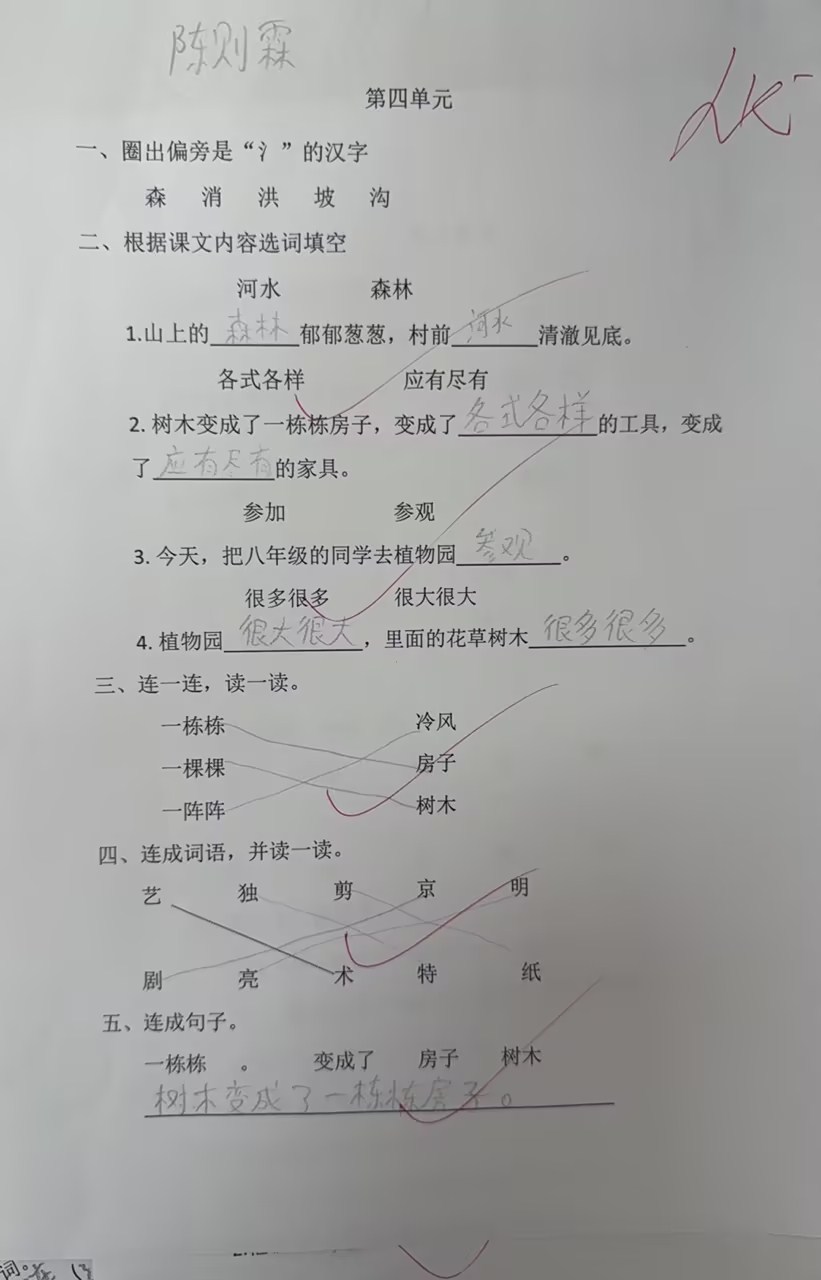 陈则霖
第四单元
一、圈出偏旁是“氵”的汉字
森 消 洪 坡 沟
二、根据课文内容选词填空
河水 森林
1.山上的森林郁郁葱葱，村前河水清澈见底。
各式各样 应有尽有
2. 树木变成了一栋栋房子，变成了各式各样的工具，变成
了应有尽有的家具。
参加 参观
3. 今天，把八年级的同学去植物园参观。
很多很多 很大很大
4. 植物园很大很大，里面的花草树木很多很多。
三、连一连，读一读。
一栋栋 冷风
一棵棵 房子
一阵阵 树木
四、连成词语，并读一读。
艺 独 剪 京 明
剧 亮 术 特 纸
五、连成句子。
一栋栋 。 变成了 房子 树木
树木变成了一栋栋房子。
词。